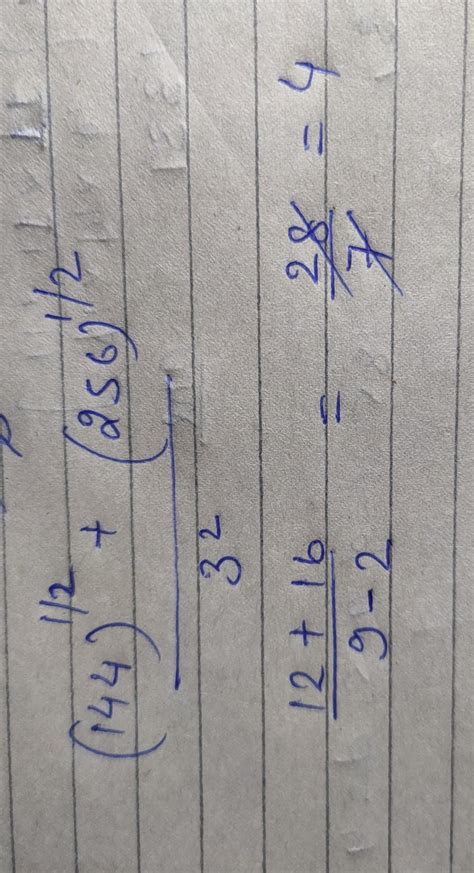 (144)^1/2 + (256)^1/2
3^2
12 + 16 / 9 - 2 = 28 / 7 = 4